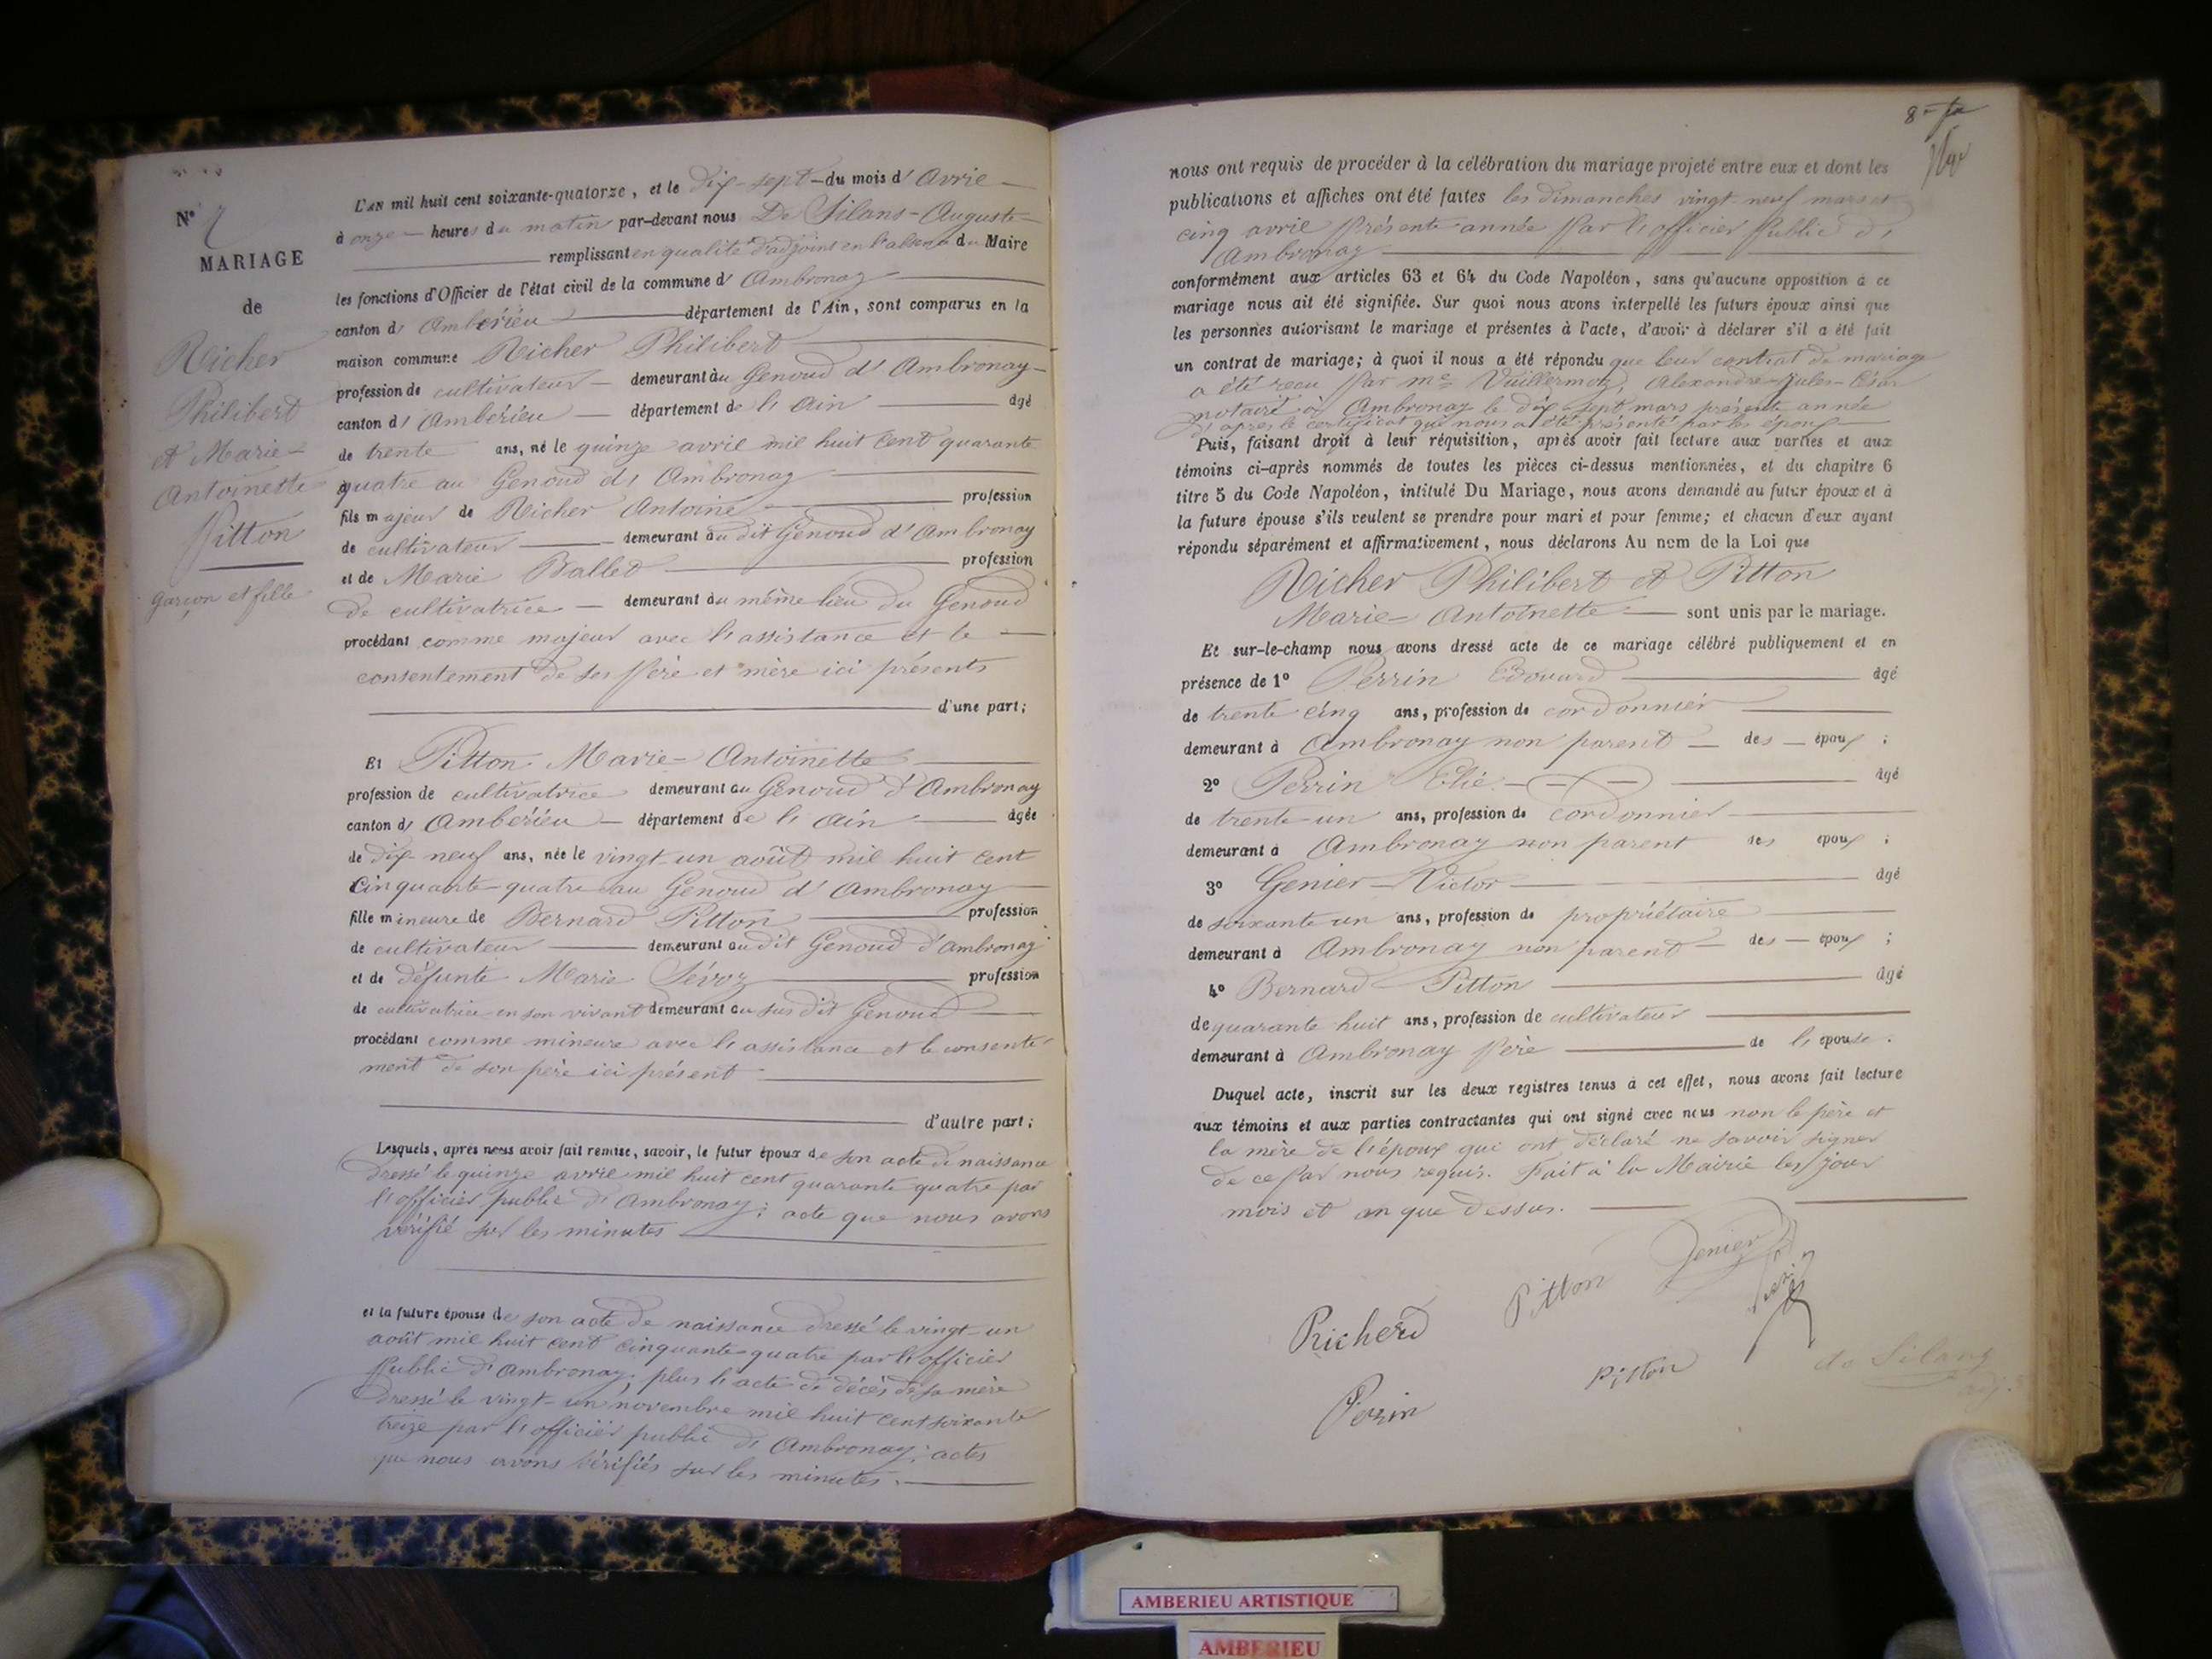 N° 7
MARIAGE
de
Richer
Philibert
et Marie-
Antoinette
Pitton
garçon et fille
L'AN mil huit cent soixante-quatorze, et le dix-sept du mois d' Avril
à onze heures du matin par-devant nous De Silans-Auguste
remplissant en qualité d'adjoint en l'absence du Maire
les fonctions d'Officier de l'état civil de la commune d' Ambronay
canton d' Ambérieu département de l'Ain, sont comparus en la
maison commune Richer Philibert
profession de cultivateur demeurant au Genoud d' Ambronay
canton d' Ambérieu département de l' Ain âgé
de trente ans, né le quinze avril mil huit cent quarante
quatre au Genoud d' Ambronay
fils majeur de Richer Antoine profession
de cultivateur demeurant au dit Genoud d' Ambronay
et de Marie Ballet profession
de cultivatrice demeurant au même lieu du Genoud
procédant comme majeur avec l'assistance et le
consentement de ses père et mère ici présents
d'une part;
Et Pitton Marie-Antoinette
profession de cultivatrice demeurant au Genoud d' Ambronay
canton d' Ambérieu département de l' Ain âgée
de dix-neuf ans, née le vingt-un août mil huit cent
cinquante-quatre au Genoud d' Ambronay
fille mineure de Bernard Pitton profession
de cultivateur demeurant au dit Genoud d'Ambronay
et de défunte Marie Sévoz profession
de cultivatrice en son vivant demeurant au sus dit Genoud
procédant comme mineure avec l'assistance et le consente-
ment de son père ici présent
d'autre part;
Lesquels, après nous avoir fait remise, savoir, le futur époux de son acte de naissance
dressé le quinze avril mil huit cent quarante quatre par
l'officier public d' Ambronay; acte que nous avons
vérifié sur les minutes
et la future épouse de son acte de naissance dressé le vingt-un
août mil huit cent cinquante-quatre par l'officier
Public d' Ambronay; plus l'acte de décès de sa mère
dressé le vingt-un novembre mil huit cent soixante
treize par l'officier public d' Ambronay; actes
que nous avons vérifiés sur les minutes.
nous ont requis de procéder à la célébration du mariage projeté entre eux et dont les
publications et affiches ont été faites les dimanches vingt neuf mars et
cinq avril Présente année Par l'officier Public d'
Ambronay
conformément aux articles 63 et 64 du Code Napoléon, sans qu'aucune opposition à ce
mariage nous ait été signifiée. Sur quoi nous avons interpellé les futurs époux ainsi que
les personnes autorisant le mariage et présentes à l'acte, d'avoir à déclarer s'il a été fait
un contrat de mariage; à quoi il nous a été répondu que leur contrat de mariage
a été reçu par me Vuillermoz, Alexandre-Jules-César
notaire à Ambronay le dix-sept mars présente année
d'après le certificat que nous a été présenté par les époux
Puis, faisant droit à leur réquisition, après avoir fait lecture aux parties et aux
témoins ci-après nommés de toutes les pièces ci-dessus mentionnées, et du chapitre 6
titre 5 du Code Napoléon, intitulé Du Mariage, nous avons demandé au futur époux et à
la future épouse s'ils veulent se prendre pour mari et pour femme; et chacun d'eux ayant
répondu séparément et affirmativement, nous déclarons Au nom de la Loi que
Richer Philibert et Pitton
Marie-Antoinette sont unis par le mariage.
Et sur-le-champ nous avons dressé acte de ce mariage célébré publiquement et en
présence de 1° Perrin Edouard âgé
de trente cinq ans, profession de cordonnier
demeurant à Ambronay non parent des époux;
2° Perrin Elie âgé
de trente-un ans, profession de cordonnier
demeurant à Ambronay non parent des époux;
3° Genier-Victor âgé
de soixante un ans, profession de propriétaire
demeurant à Ambronay non parent des époux;
4° Bernard Pitton âgé
de quarante huit ans, profession de cultivateur
demeurant à Ambronay Père de l' épouse.
Duquel acte, inscrit sur les deux registres tenus à cet effet, nous avons fait lecture
aux témoins et aux parties contractantes qui ont signé avec nous non le père et
la mère de l'époux qui ont déclaré ne savoir signer
de ce par nous requis. Fait à la Mairie les jour
mois et an que dessus.
Genier
Pitton
Richerd
Pitton
de Silans
adj.
Perrin
AMBERIEU ARTISTIQUE
AMBERIEU